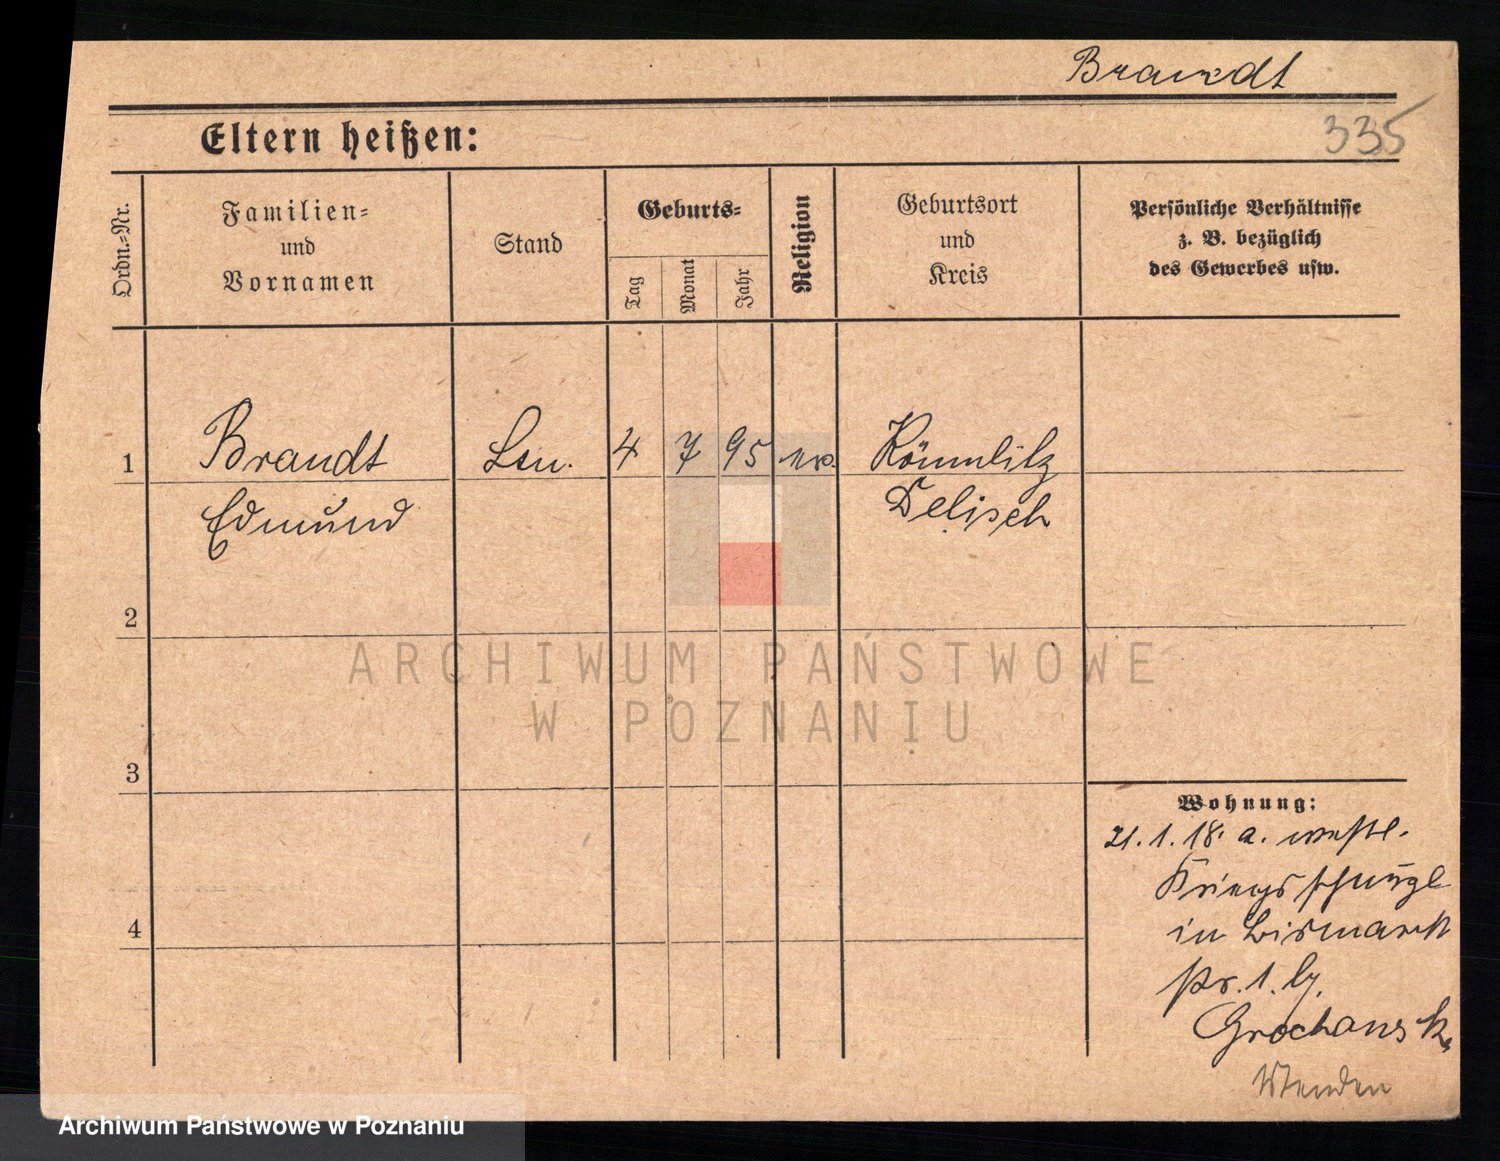 Brandt
335
Eltern heißen:
Ordn.=Nr.
Familien=
und
Vornamen
Stand
Geburts=
Tag
Monat
Jahr
Religion
Geburtsort
und
Kreis
Persönliche Verhältnisse
z. B. bezüglich
des Gewerbes usw.
1
Brandt
Edmund
4 7 95
Delisch
2
3
4
Wohnung:
21.1.18. a.
in Bismarck
str. 1. b/.
Grochansk
Wenden
ARCHIWUM PAŃSTWOWE
W POZNANIU
Archiwum Państwowe w Poznaniu